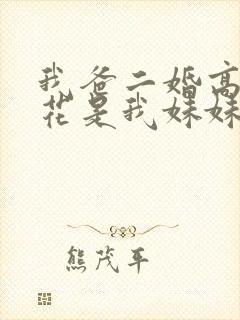 我爸二婚高
花是我妹妹
熊茂平